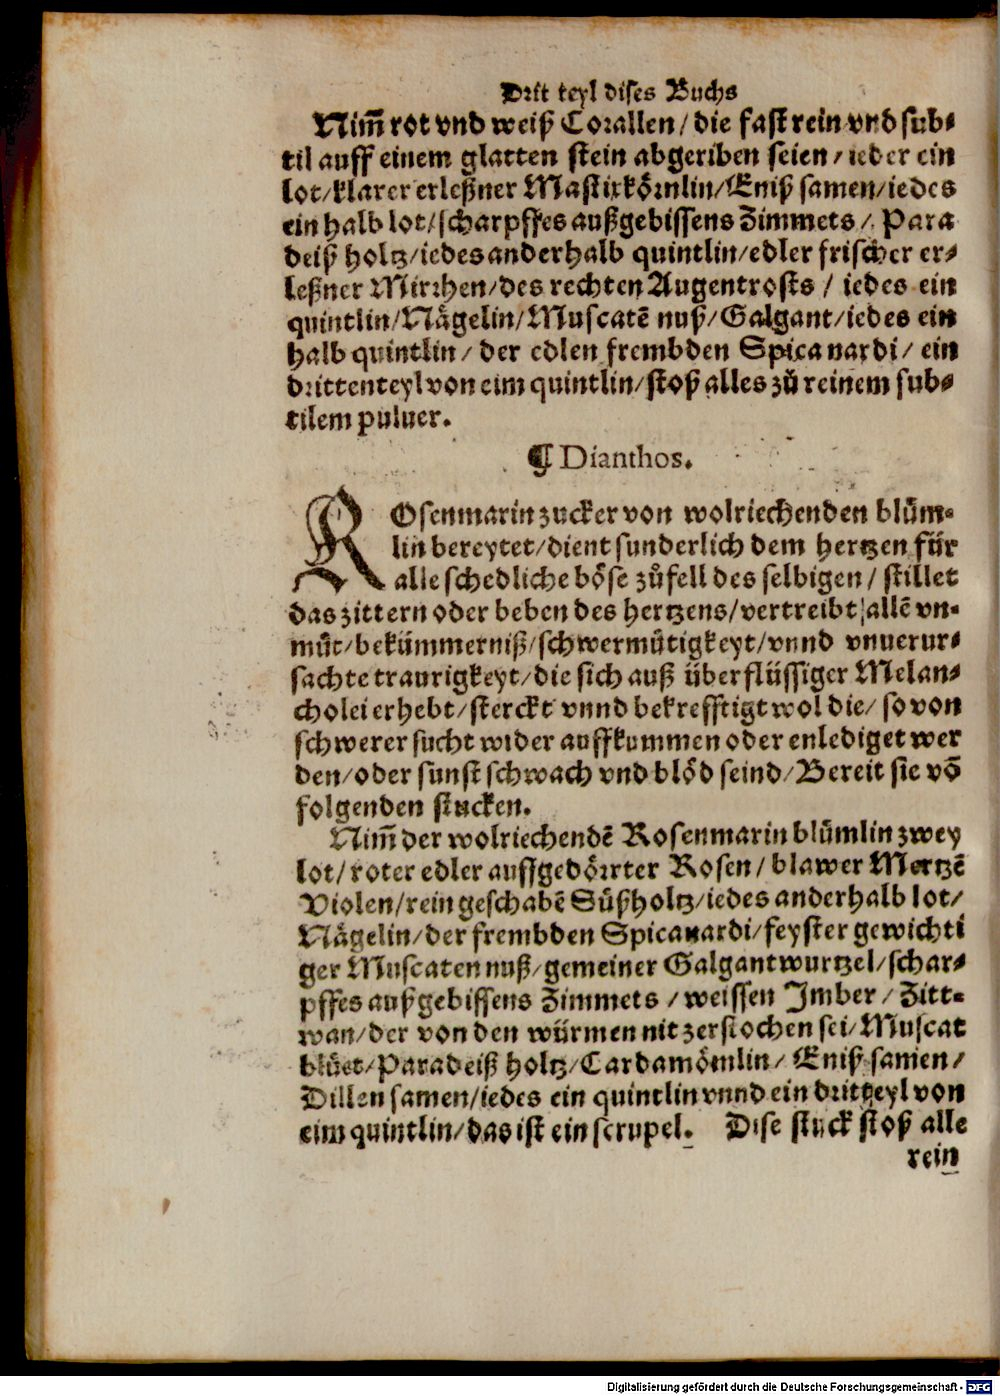 Drit teyl dises Buchs
Nim̃ rot vnd weiß Corallen / die fast rein vnd sub⸗
til auff einem glatten stein abgeriben seien / ieder ein
lot / klarer erleßner Mastixkoͤrnlin / Eniß samen / iedes
ein halb lot / scharpffes außgebissens Zimmets / Para
deiß holtz / iedes anderhalb quintlin / edler frischer er⸗
leßner Mirrhen / des rechten Augentrosts / iedes ein
quintlin / Naͤgelin / Muscatē nuß / Galgant / iedes ein
halb quintlin / der edlen frembden Spica nardi / ein
drittenteyl von eim quintlin / stoß alles zů reinem sub⸗
tilem puluer.
¶ Dianthos.
ROsenmarinzucker von wolriechenden bluͤm⸗
lin bereytet / dient sunderlich dem hertzen für
alle schedliche boͤse zůfell des selbigen / stillet
das zittern oder beben des hertzens / vertreibt allē vn⸗
můt / bekümmerniß / schwermuͤtigkeyt / vnnd vnuerur⸗
sachte traurigkeyt / die sich auß überflüssiger Melan⸗
cholei erhebt / sterckt vnnd bekrefftigt wol die / so von
schwerer sucht wider auffkummen oder enlediget wer
den / oder sunst schwach vnd bloͤd seind / Bereit sie vō
folgenden stucken.
Nim̃ der wolriechendē Rosenmarin bluͤmlin zwey
lot / roter edler auffgedoͤrrter Rosen / blawer Mertzē
Violen / rein geschabē Suͤßholtz / iedes anderhalb lot /
Naͤgelin / der frembden Spicanardi / feyster gewichti
ger Muscaten nuß / gemeiner Galgantwurtzel / schar⸗
pffes außgebissens Zimmets / weissen Imber / Zitt⸗
wan / der von den würmen nit zerstochen sei / Muscat
bluͤet / Paradeiß holtz / Cardamoͤmlin / Eniß samen /
Dillen samen / iedes ein quintlin vnnd ein dritteyl von
eim quintlin / das ist ein scrupel. Dise stuck stoß alle
rein
Digitalisierung gefördert durch die Deutsche Forschungsgemeinschaft - DFG